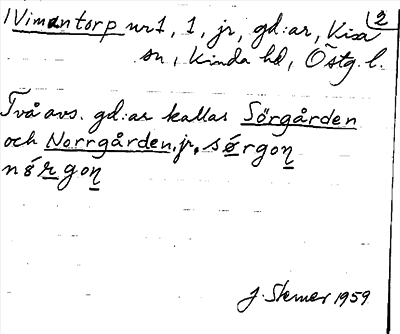 Vimantorp nr 1, 1, jr, gd:ar, Kisa 2
sn, Kinda hd, Östg. l.
Två avs. gd:ar kallas Sörgården
och Norrgården. jr, sørgoṉ
nørgoṉ
J. Sterner 1959